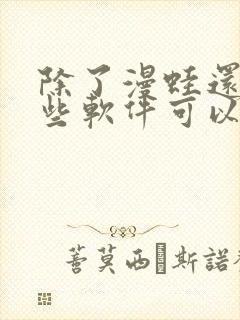 除了漫蛙還
些軟件可以
蓍莫西·斯諾